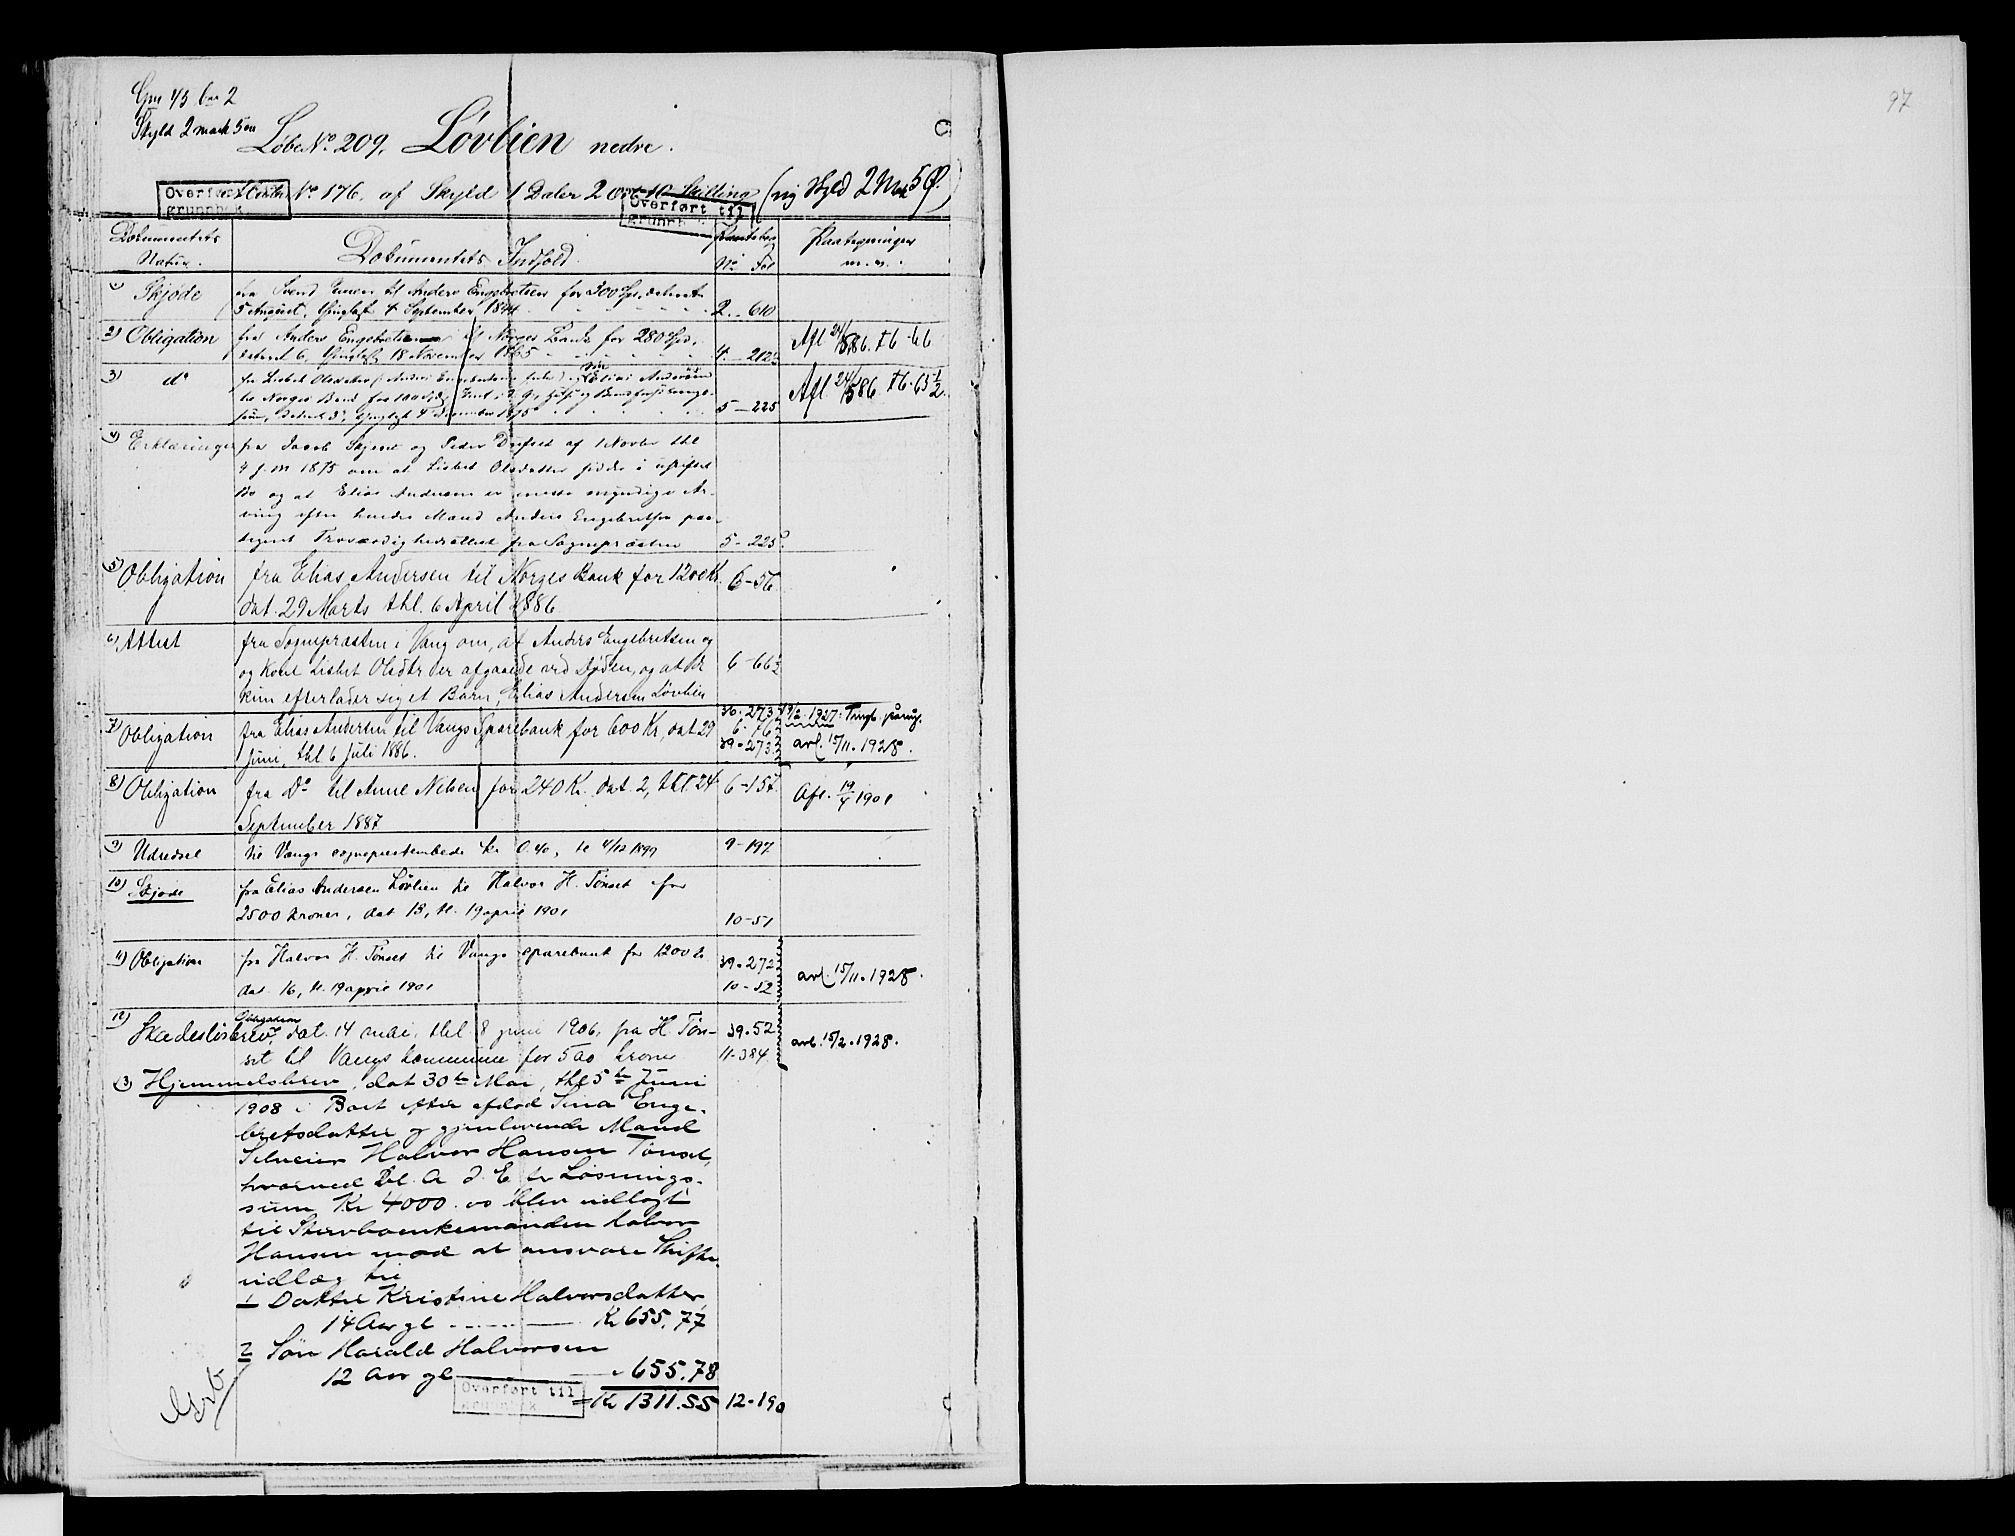 Gnr 45 bnr 2
Skyld 2 mark 5 øre
Løbe No 209. Løvlien nedre.
Matr No 176. af Skyld 1 Daler 2 Ort 10 Skilling (ny Skyld 2 Mrk 5 Ø.)
Overført til
grunnbok
Overført til
Dokumentets Natur.
Dokumentets Indhold.
No Fol
Paategninger m. v.
1) Skjøde
fra Svend til Anders Engebretsen for 300 Spd, dateret
5 August, thinglyst 4 September 1844
2 - 610
2) Obligation
fra Anders Engebretsen til Norges Bank for 280 Spd,
dateret 6, thinglyst 18 November 1865
4 - 212
Afl 24/5 86. P 6 - 66
3) do
fra Lisbet Olsdatter (Anders Engebretsens Enke) og Elias Andersen
til Norges Bank for 100 Spd,
4 December 1875
5 - 225
Afl 24/5 86 P 6 - 65 1/2.
4) Erklæringer
fra Jacob Skjesæt og Peder af 1 Novbr thl
4 f. m 1875 om at Lisbet Olsdatter sidder i uskiftet
Bo og at Elias Andersen er eneste myndige Ar-
ving efter hendes Mand Anders Engebretsen paa-
tegnet Troværdighedsattest fra Sognepræsten
5 - 225
5) Obligation
fra Elias Andersen til Norges Bank for 1200 Kr.
dat. 29 Marts thl. 6 April 1886
6 - 56
6) Attest
fra Sognepræsten i Vang om, at Anders Engebretsen og
og Kone Lisbet Olsdtr er afgaaede ved Døden, og at de
kun efterlader sig et Barn, Elias Andersen Løvlien
6 - 66 1/2
7) Obligation
fra Elias Andersen til Vangs Sparebank for 600 Kr, dat 29
Juni, thl 6 Juli 1886.
36 - 273
6 - 76
39 - 273
1927: Tingl. påtegn.
avl. 15/11. 1928.
8) Obligation
fra Do til Anne Nilsen for 240 Kr. dat. 2, thl. 24
September 1887
6 - 157
Afl. 19/4 1901
9) Udredsel
til Vangs sogneprestembede kr 0.40, tl 4/12 1899
9 - 197
10) Skjøde
fra Elias Andersen Løvlien til Halvor H. Tønset for
2500 kroner, dat 13, tl. 19 april 1901
10 - 51
11) Obligation
fra Halvor H. Tønset til Vangs sparebank for 1200 kr
dat. 16, tl. 19 april 1901
39 - 272
10 - 52
avl. 15/11. 1928.
12) Skadesløsbrev,
Obligation
dat. 14 mai, thl 8 juni 1906, fra H Tøn-
set til Vangs kommune for 500 kroner
39 - 52
11 - 384
avl. 15/2. 1928.
13) Hjemmelsbrev, dat 30te Mai, thl 5te Juni
1908 i Boet efter afdød Sina Enge-
bretsdatter og gjenlevende Mand
Selveier Halvor Hansen Tønset,
hvorved Bl. A d. E for Løsnings-
sum Kr 4000.00 blev udlagt
til Stervboenkemanden Halvor
Hansen mod at ansvare Skifte-
udlæg til
1 Datter Kristine Halvorsdatter,
14 Aar gl ... Kr 655.77
2 Søn Harald Halvorsen
12 Aar gl " 655.78
= Kr 1311.55
12 - 190
Overført til
grunnbok
97